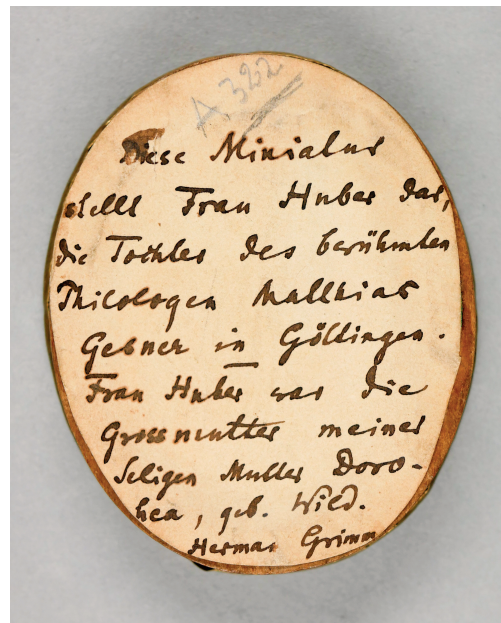 A 322
Diese Miniatur
stellt Frau Huber dar,
die Tochter des berühmten
Philologen Matthias
Gesner in Göttingen.
Frau Huber war die
Grossmutter meiner
Seligen Mutter Doro-
hea, geb. Wild.
Herman Grimm